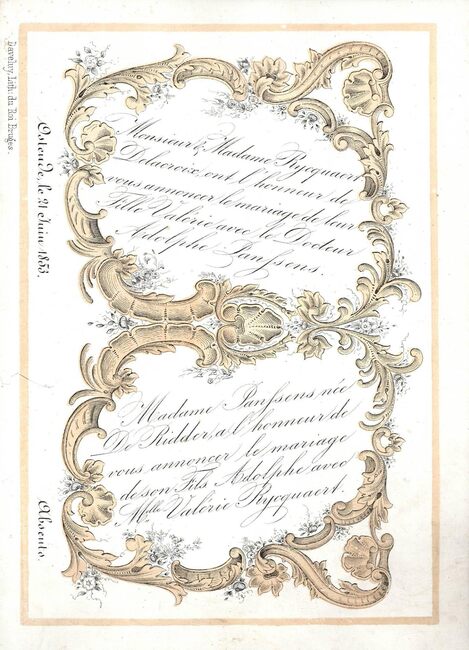 Monsieur & Madame Rycquaert
Delacroix, ont l'honneur de
vous annoncer le mariage de leur
Fille Valérie avec le Docteur
Adolphe Janssens.
Madame Janssens née
De Ridder, a l'honneur de
vous annoncer le mariage
de son Fils Adolphe avec
Mlle Valérie Rycquaert.
Ostende, le 21 Juin 1853.
Absents.
Daveluy, Lith. du Roi Bruges.